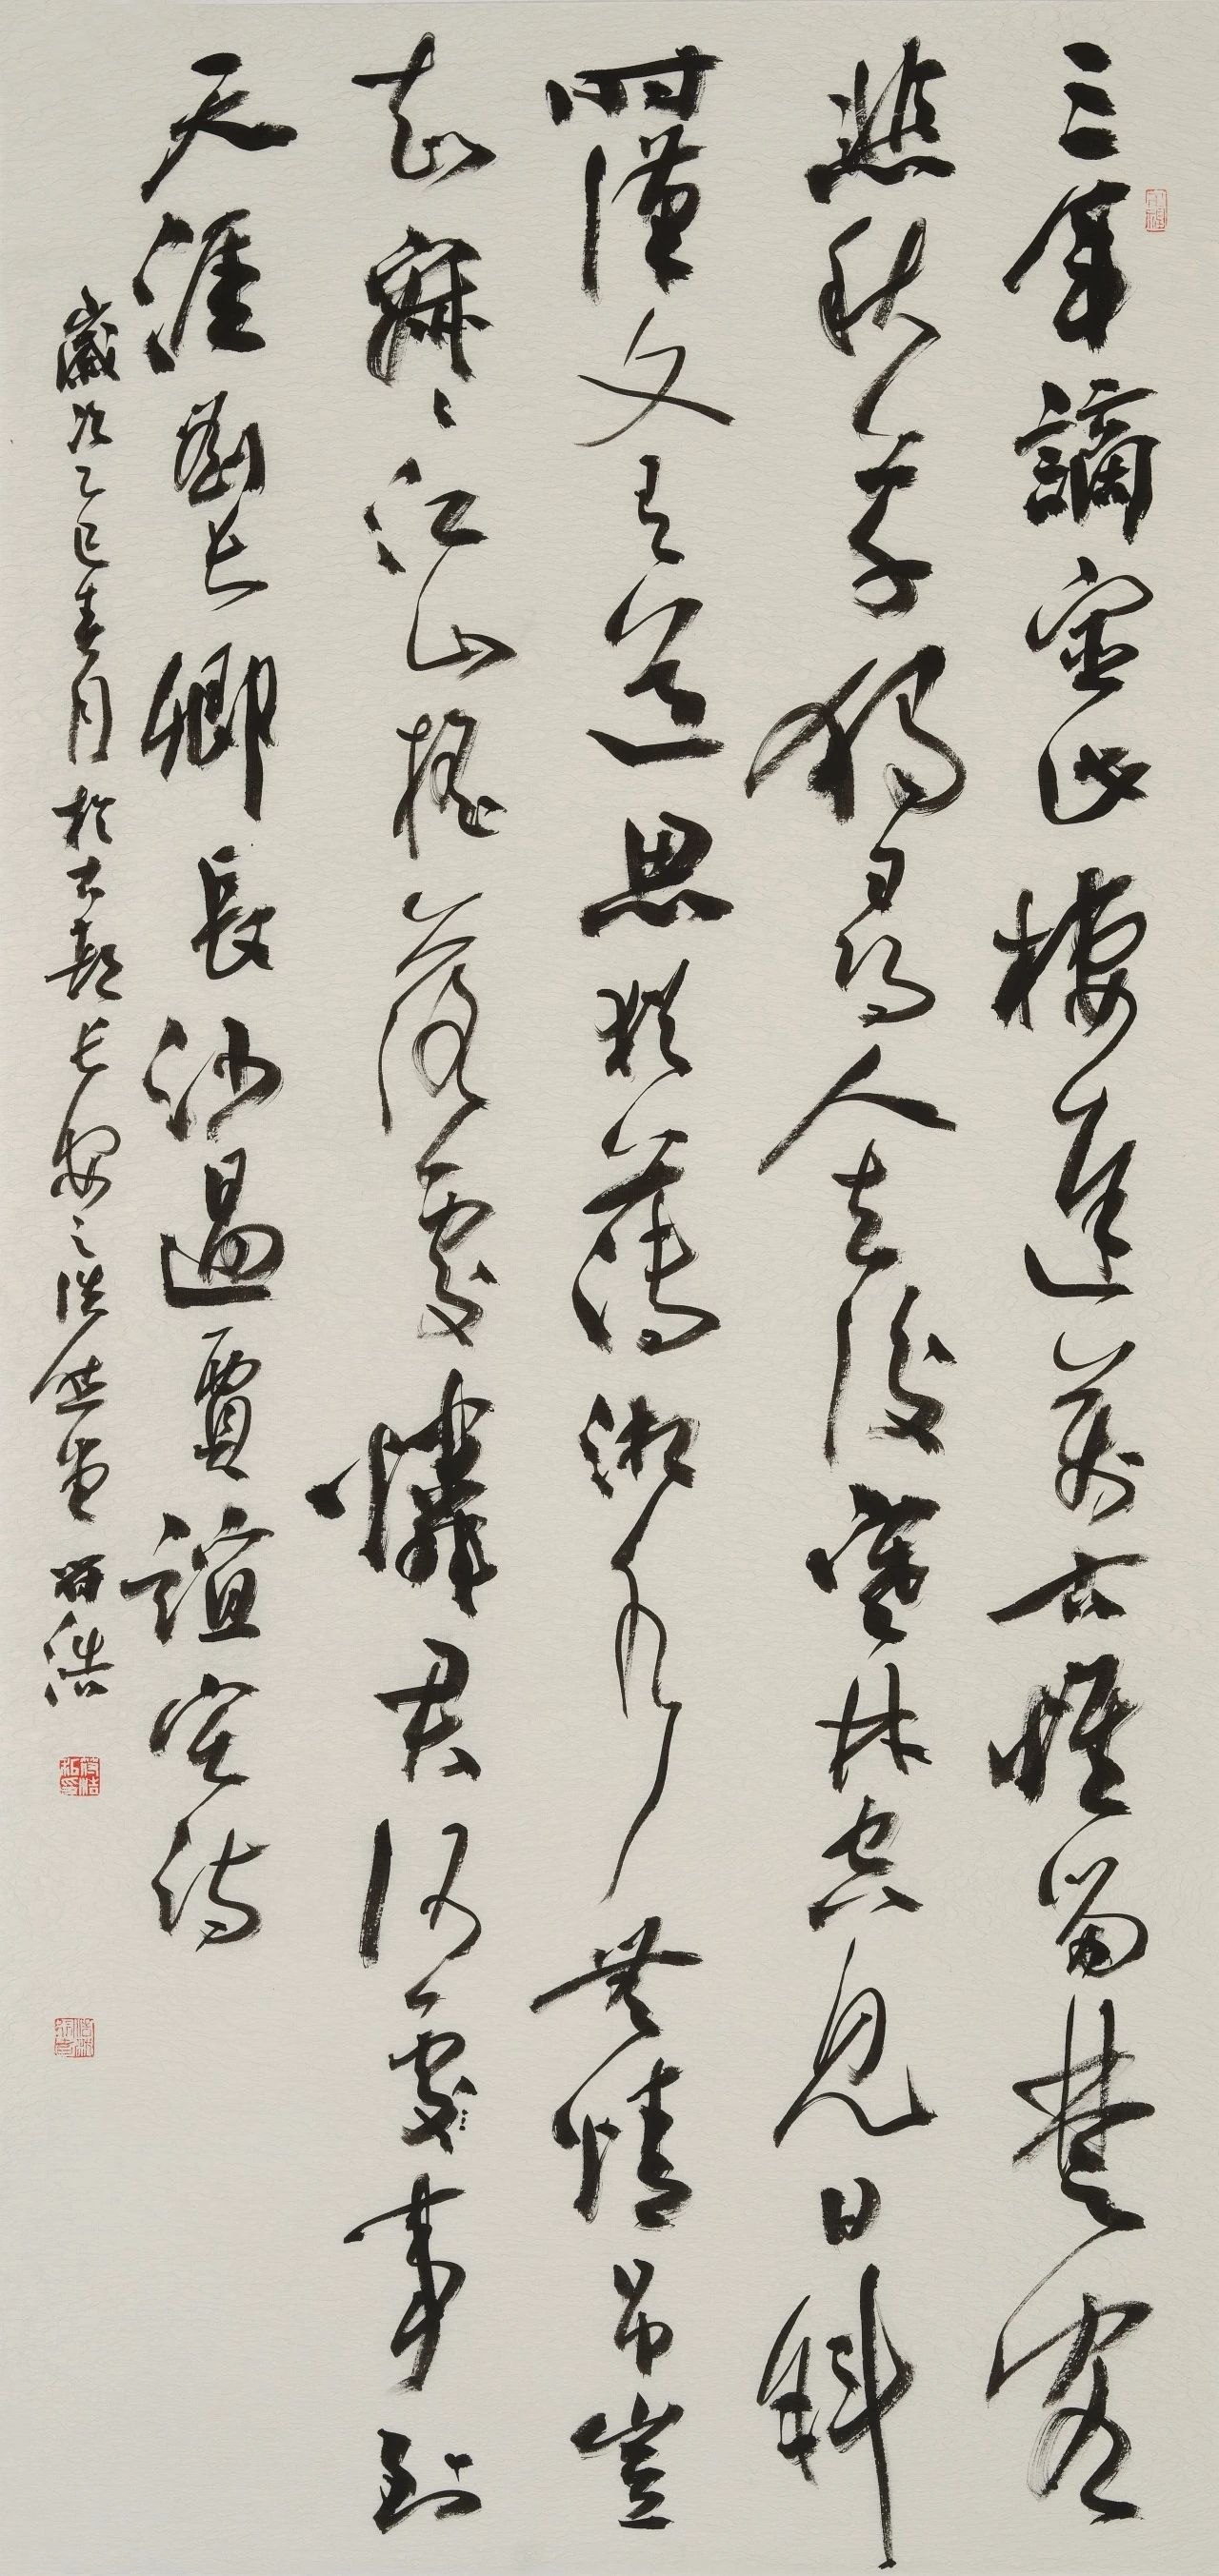 三年謫宦此棲遲萬古惟留楚客
悲秋草獨尋人去後寒林空見日斜
時漢文有道恩猶薄湘水無情弔豈
知寂〻江山搖落處憐君何處事到
天涯劉長卿長沙過賈誼宅詩
歲次乙巳春月於古都長安之浩然堂浩